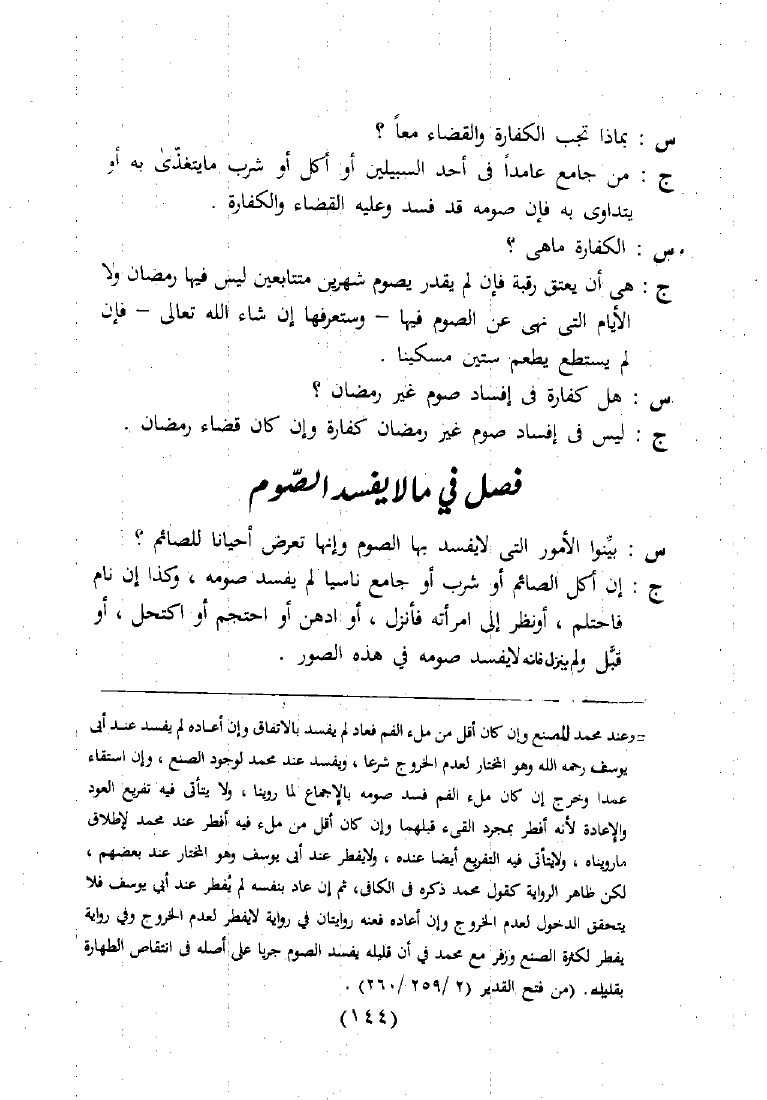 س : بماذا تجب الكفارة والقضاء معاً ؟
ج : من جامع عامداً فى أحد السبيلين أو أكل أو شرب مايتغذّى به أو
يتداوى به فإن صومه قد فسد وعليه القضاء والكفارة .
س : الكفارة ماهى ؟
ج : هى أن يعتق رقبة فإن لم يقدر يصوم شهرين متتابعين ليس فيها رمضان ولا
الأيام التى نهى عن الصوم فيها – وستعرفها إن شاء الله تعالى – فإن
لم يستطع يطعم ستين مسكينا .
س : هل كفارة فى إفساد صوم غير رمضان ؟
ج : ليس فى إفساد صوم غير رمضان كفارة وإن كان قضاء رمضان .
فصل في مالا يفسد الصّوم
س : بيِّنوا الأمور التى لايفسد بها الصوم وإنها تعرض أحيانا للصائم ؟
ج : إن أكل الصائم أو شرب أو جامع ناسيا لم يفسد صومه ، وكذا إن نام
فاحتلم ، أونظر إلى امرأته فأنزل ، أو ادهن أو احتجم أو اكتحل ، أو
قبَّل ولم ينزل فانه لايفسد صومه في هذه الصور .
= وعند محمد للصنع وإن كان أقل من ملء الفم فعاد لم يفسد بالاتفاق وإن أعاده لم يفسد عند أبى
يوسف رحمه الله وهو المختار لعدم الخروج شرعا ، ويفسد عند محمد لوجود الصنع ، وإن استقاء
عمدا وخرج إن كان ملء الفم فسد صومه بالإجماع لما روينا ، ولا يتأتى فيه تفريع العود
والإعادة لأنه أفطر بمجرد القىء قبلهما وإن كان أقل من ملء فيه أفطر عند محمد لإطلاق
مارويناه ، ولايتأتى فيه التفريع أيضا عنده ، ولايفطر عند أبى يوسف وهو المختار عند بعضهم ،
لكن ظاهر الرواية كقول محمد ذكره فى الكافى، ثم إن عاد بنفسه لم يُفطر عند أبي يوسف فلا
يتحقق الدخول لعدم الخروج وإن أعاده فعنه روايتان في رواية لايفطر لعدم الخروج وفي رواية
يفطر لكثرة الصنع وزفر مع محمد في أن قليله يفسد الصوم جريا على أصله فى انتقاص الطهارة
بقليله. (من فتح القدير (٢ /٢٥٩ /٢٦٠) .
(١٤٤)